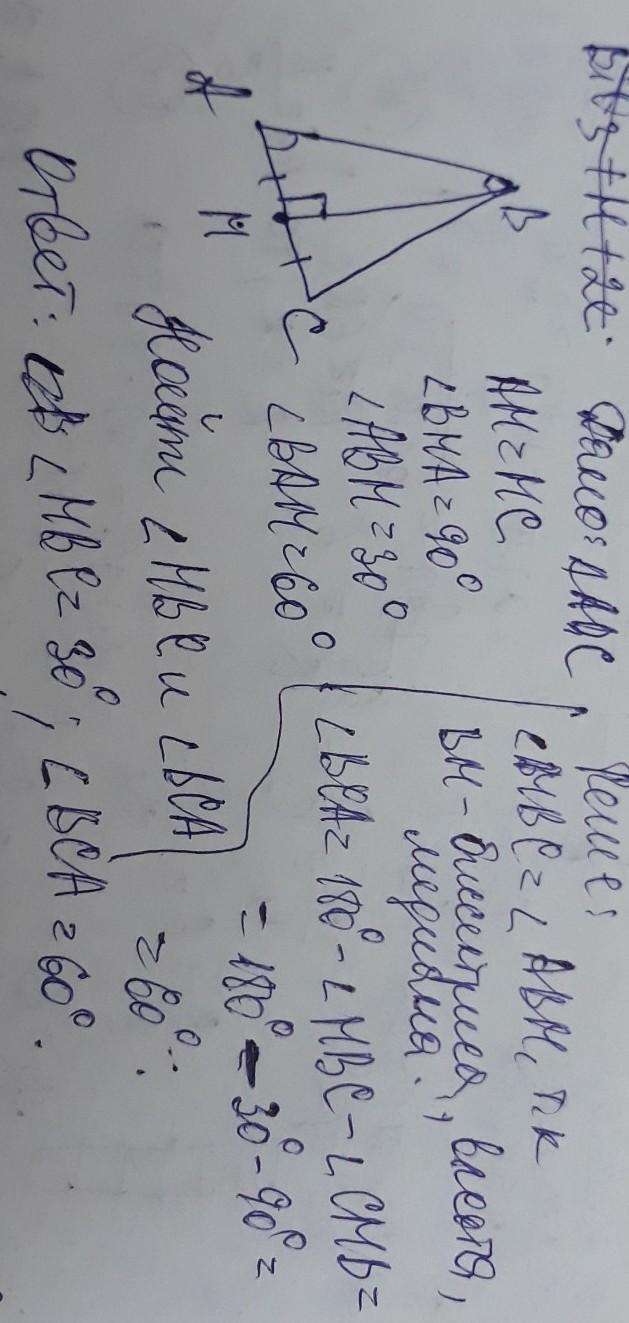 Дано: ΔABC,
AM=MC
∠BMA=90°
∠ABM=30°
∠BAM=60°
Найти ∠MBC и ∠BCA
B
A
M
C
Реше:
∠MBC=∠ABM, т.к
BM - биссектриса, высота,
медиана.
∠BCA=180°-∠MBC-∠CMB=
=180°-30°-90°=
=60°.
Ответ: ∠MBC=30°; ∠BCA=60°.